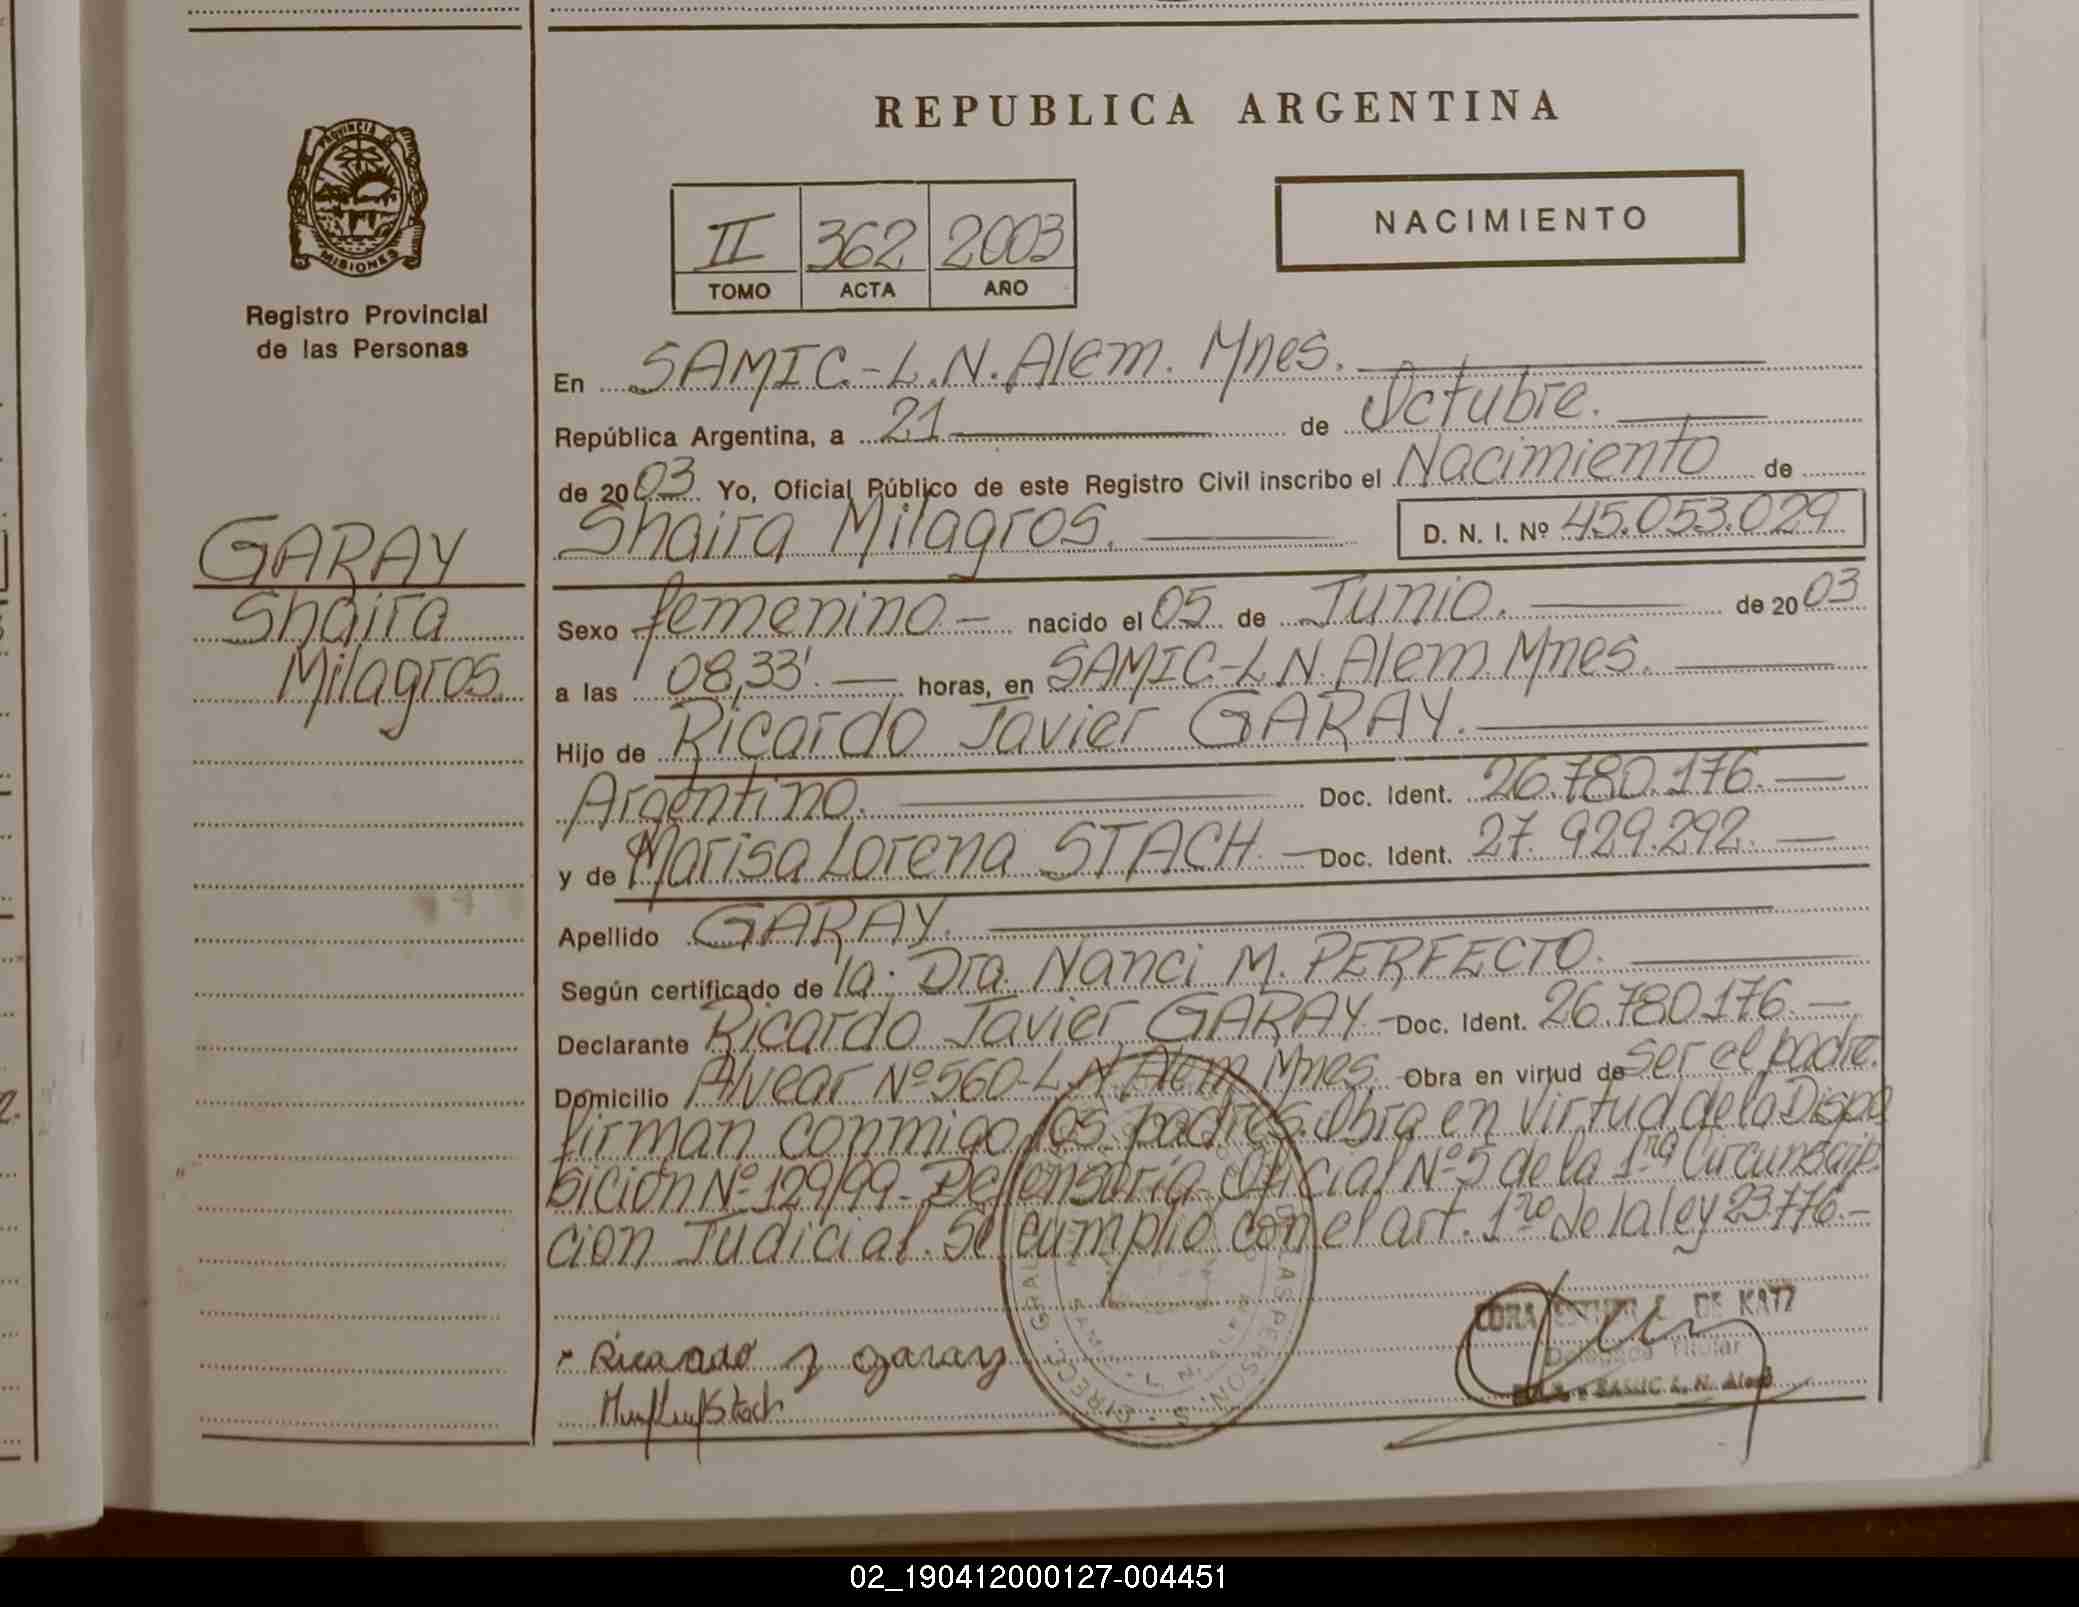 REPUBLICA ARGENTINA
PROVINCIA
MISIONES
Registro Provincial
de las Personas
II 362 2003
TOMO ACTA AÑO
NACIMIENTO
En SAMIC.-L.N.Alem. Mnes.
República Argentina, a 21 de Octubre.
de 2003 Yo, Oficial Público de este Registro Civil inscribo el Nacimiento de
Shaira Milagros. D. N. I. Nº 45.053.029
GARAY
Shaira
Milagros.
Sexo femenino.- nacido el 05 de Junio. de 2003
a las 08,33'. horas, en SAMIC-L N. Alem. Mnes.
Hijo de Ricardo Javier GARAY.
Argentino. Doc. Ident. 26.780.176.-
y de Marisa Lorena STACH.- Doc. Ident. 27.929.292.-
Apellido GARAY.
Según certificado de la: Dra. Nanci M. PERFECTO.
Declarante Ricardo Javier GARAY.- Doc. Ident. 26.780.176.-
Domicilio Alvear Nº 560-L.N.Alem Mnes. Obra en virtud de ser el padre.
firman conmigo los padres. Obra en virtud de la Dispo
sición Nº 129/99- Defensoría Oficial Nº 5 de la 1ra Circunscrip
cion Judicial. Se cumplió con el art. 1ro de la ley 23.776.-
CORA DE KATZ
Delegada Titular
SAMIC L. N. Alem
Ricardo J garay
Stach
02_190412000127-004451